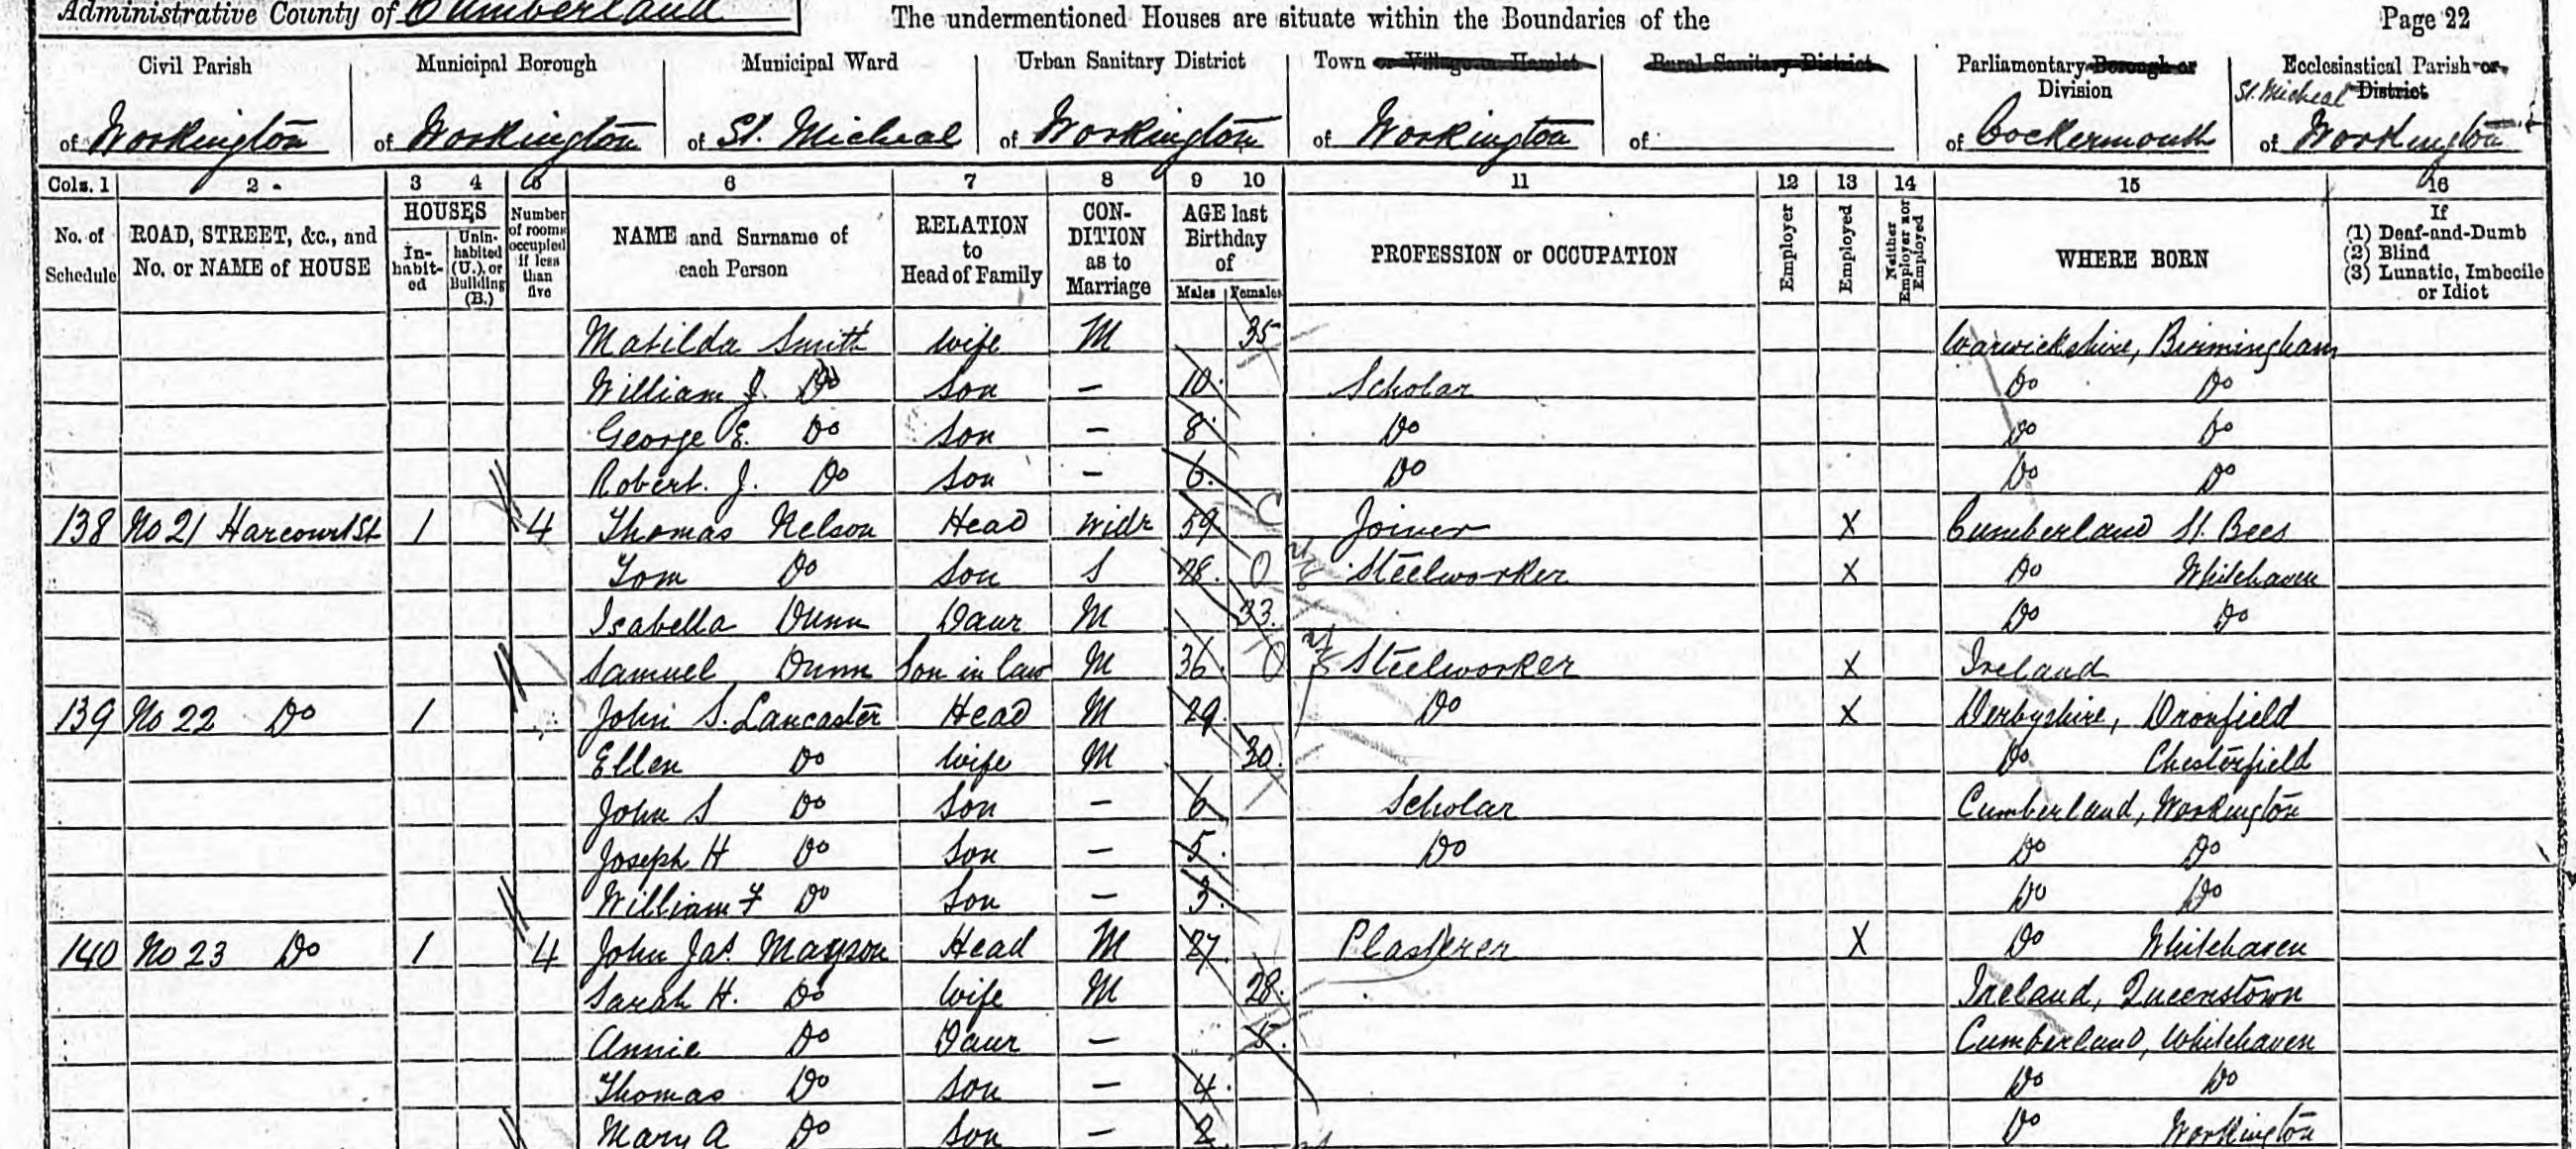 Administrative County of Cumberland
The undermentioned Houses are situate within the Boundaries of the
Page 22
Civil Parish Municipal Borough Municipal Ward Urban Sanitary District Town or Village or Hamlet Rural Sanitary District Parliamentary Borough or Division Ecclesiastical Parish or District
of Workington of Workington of St. Micheal of Workington of Workington of of Cockermouth St. Micheal of Workington
Cols. 1 2 3 4 5 6 7 8 9 10 11 12 13 14 15 16
No. of Schedule ROAD, STREET, &c., and No. or NAME of HOUSE HOUSES In-habit-ed Unin-habited (U.), or Building (B.) Number of rooms occupied if less than five NAME and Surname of each Person RELATION to Head of Family CON-DITION as to Marriage AGE last Birthday of Males Females PROFESSION or OCCUPATION Employer Employed Neither Employer nor Employed WHERE BORN If (1) Deaf-and-Dumb (2) Blind (3) Lunatic, Imbecile or Idiot
Matilda Smith Wife M 35 Warwickshire, Birmingham
William J. Do Son - 10 Scholar Do Do
George E. Do Son - 8 Do Do Do
Robert. J. Do Son - 6 Do Do Do
138 No 21 Harcourt St 1 4 Thomas Nelson Head Widr 59 Joiner X Cumberland St. Bees
Tom Do Son S 28 Steelworker X Do Whitehaven
Isabella Dunn Daur M 33 Do Do
Samuel Dunn Son in law M 36 Steelworker X Ireland
139 No 22 Do 1 John S. Lancaster Head M 29 Do X Derbyshire, Dronfield
Ellen Do Wife M 30 Do Chesterfield
John S Do Son - 6 Scholar Cumberland, Workington
Joseph H Do Son - 5 Do Do Do
William F Do Son - 3 Do Do
140 No 23 Do 1 4 John Jas. Mayson Head M 27 Plasterer X Do Whitehaven
Sarah H. Do Wife M 28 Ireland, Queenstown
Annie Do Daur - 5 Cumberland, Whitehaven
Thomas Do Son - 4 Do Do
Mary A Do Son - 2 Do Workington